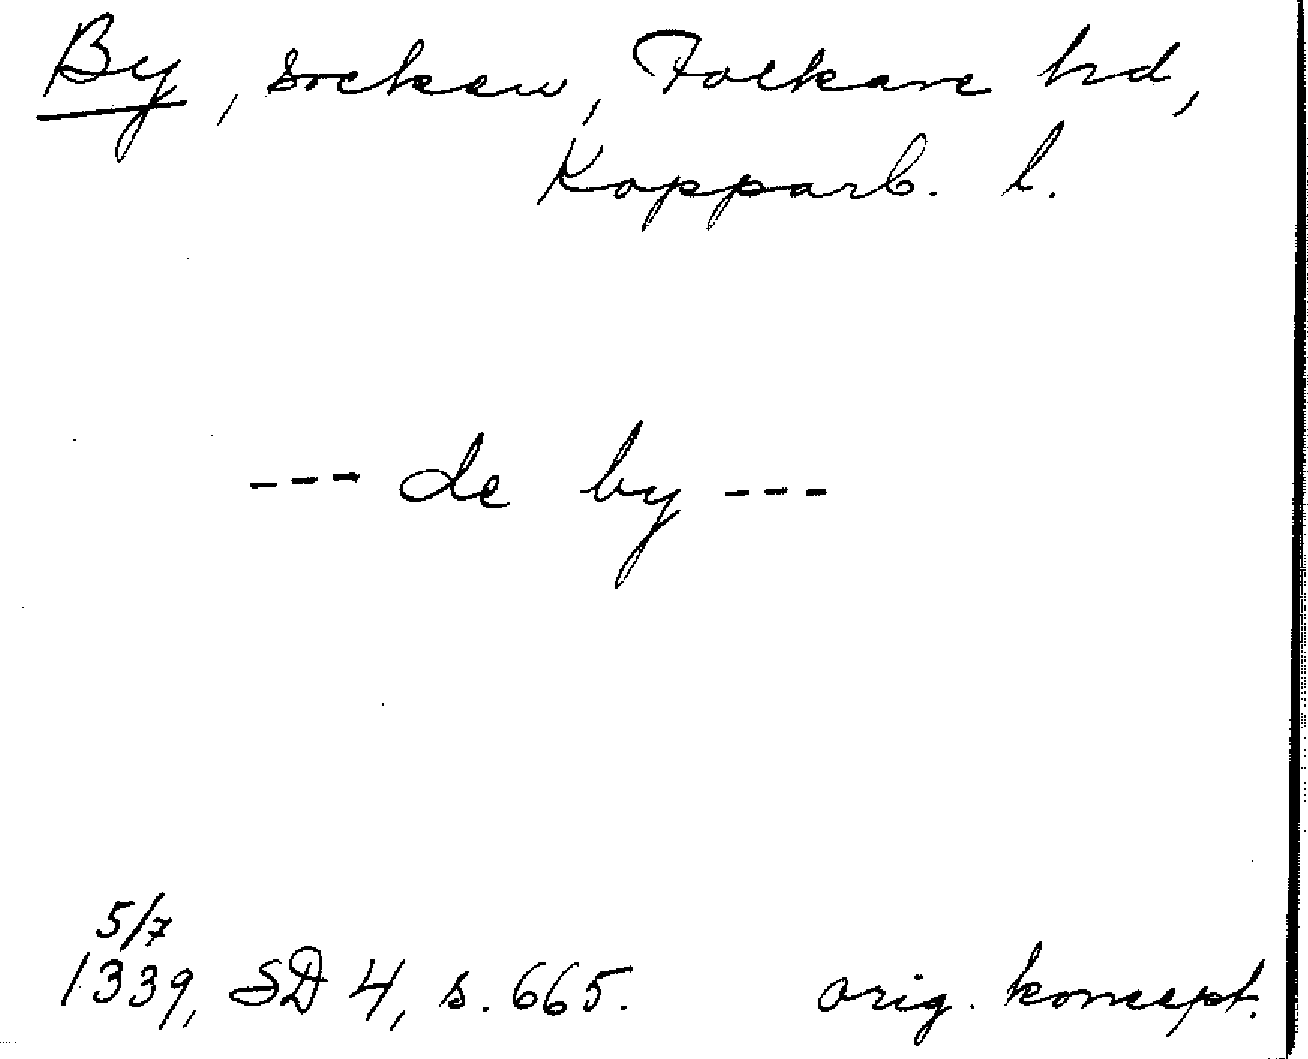 By, socken, Folkare hd,
Kopparb. l.
--- de by ---
5/7
1339, SD 4, s. 665. orig. koncept.